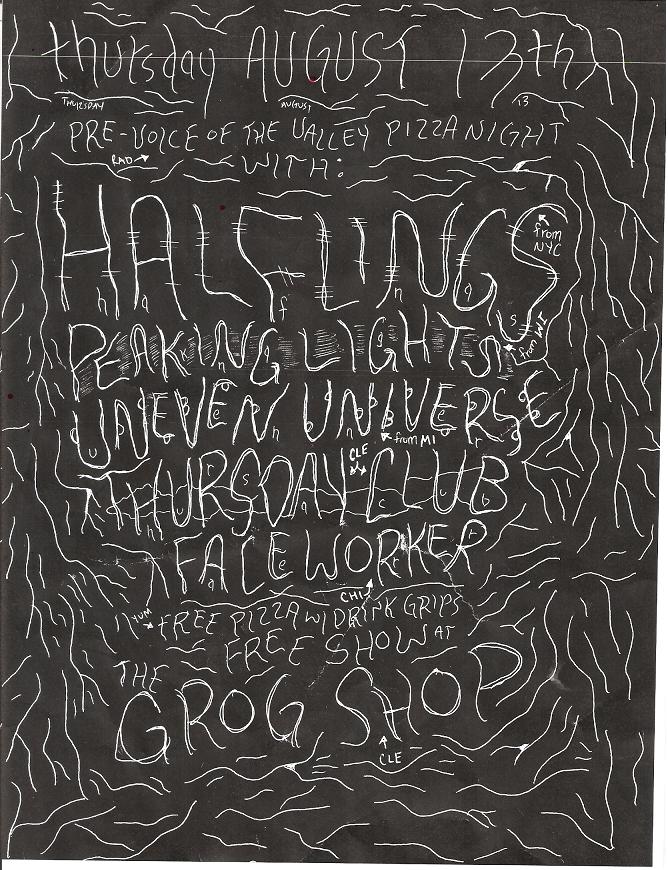 thursday AUGUST 13th
THURSDAY AUGUST 13
PRE-VOICE OF THE VALLEY PIZZA NIGHT
RAD WITH:
HALFLINGS
from NYC
h a f n g s
PEAKING LIGHTS
from WI
UNEVEN UNIVERSE
from MI
CLE
THURSDAY CLUB
FACEWORKER
CHI
YUM FREE PIZZA W/ DRINK GRIPS
FREE SHOW AT
THE
GROG SHOP
CLE